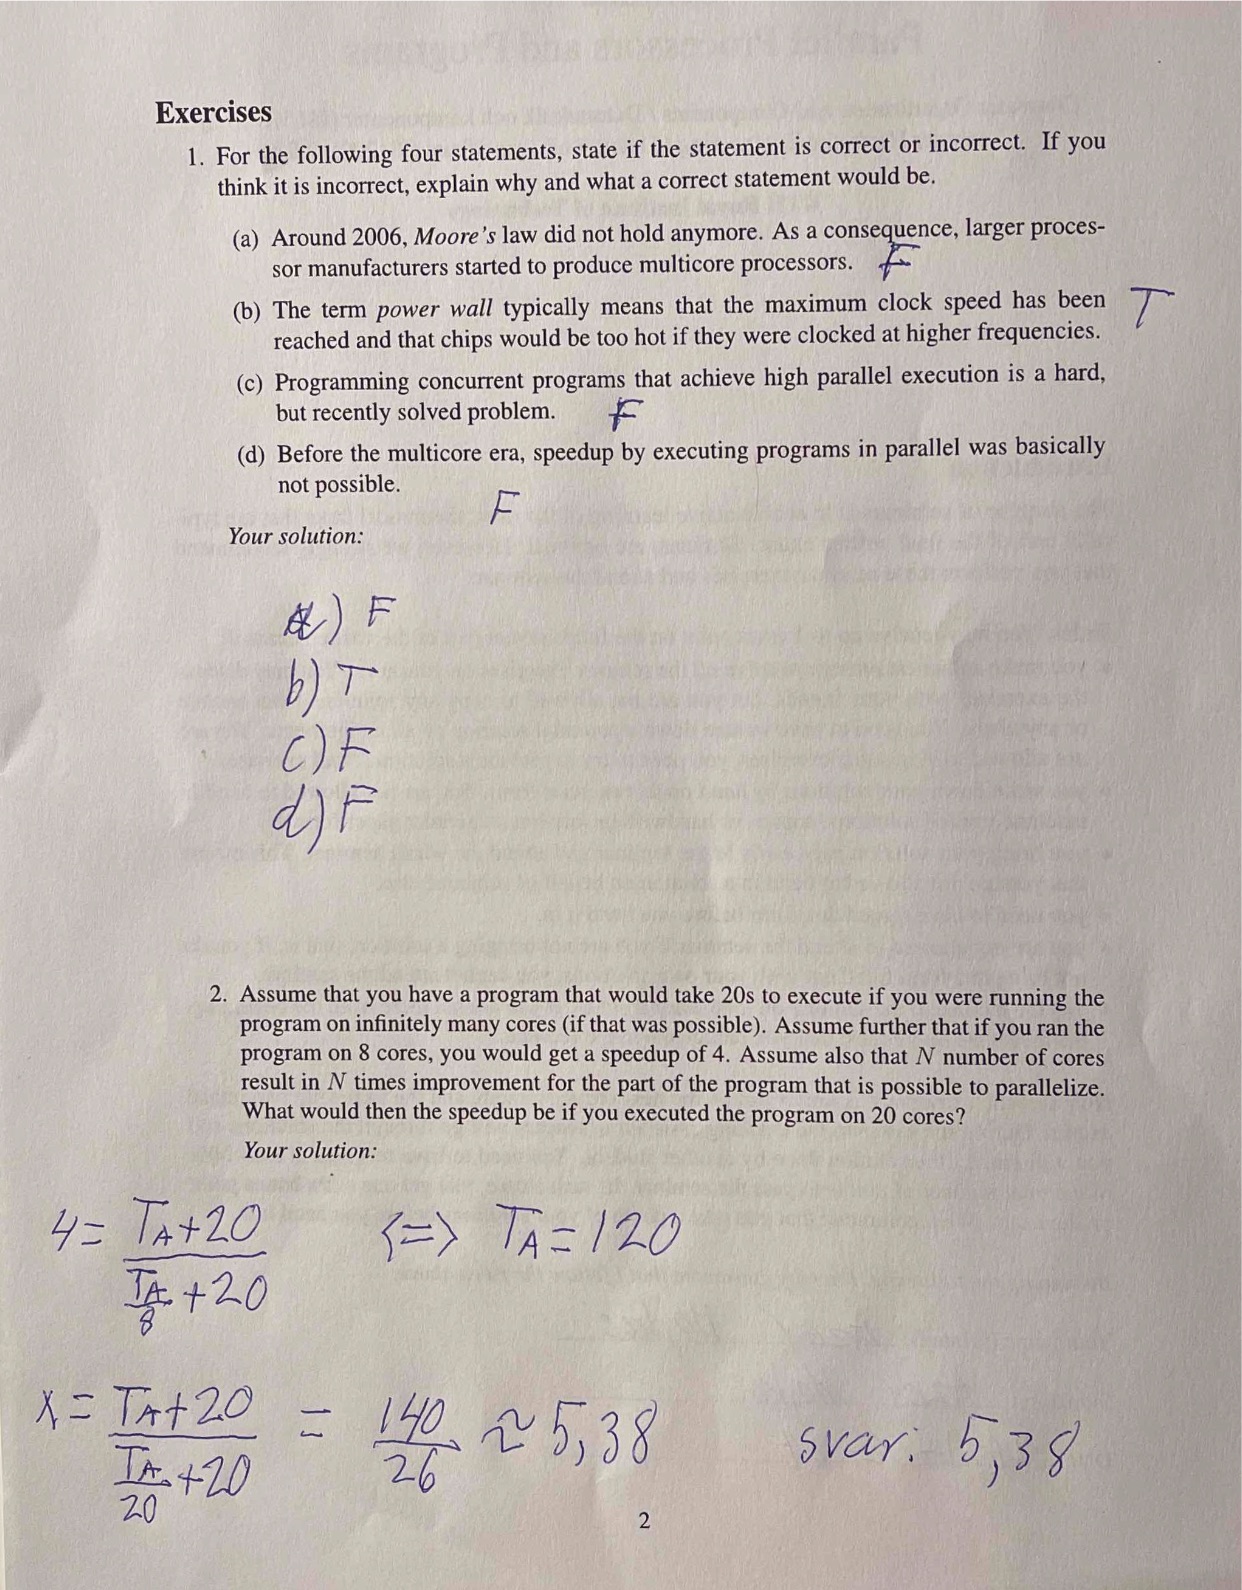 Exercises
1. For the following four statements, state if the statement is correct or incorrect. If you
think it is incorrect, explain why and what a correct statement would be.
(a) Around 2006, Moore's law did not hold anymore. As a consequence, larger proces-
sor manufacturers started to produce multicore processors. F
(b) The term power wall typically means that the maximum clock speed has been T
reached and that chips would be too hot if they were clocked at higher frequencies.
(c) Programming concurrent programs that achieve high parallel execution is a hard,
but recently solved problem. F
(d) Before the multicore era, speedup by executing programs in parallel was basically
not possible. F
Your solution:
a) F
b) T
c) F
d) F
2. Assume that you have a program that would take 20s to execute if you were running the
program on infinitely many cores (if that was possible). Assume further that if you ran the
program on 8 cores, you would get a speedup of 4. Assume also that N number of cores
result in N times improvement for the part of the program that is possible to parallelize.
What would then the speedup be if you executed the program on 20 cores?
Your solution:
4 = (TA + 20) / (TA/8 + 20) <=> TA = 120
x = (TA + 20) / (TA/20 + 20) = 140/26 ≈ 5,38 svar: 5,38
2